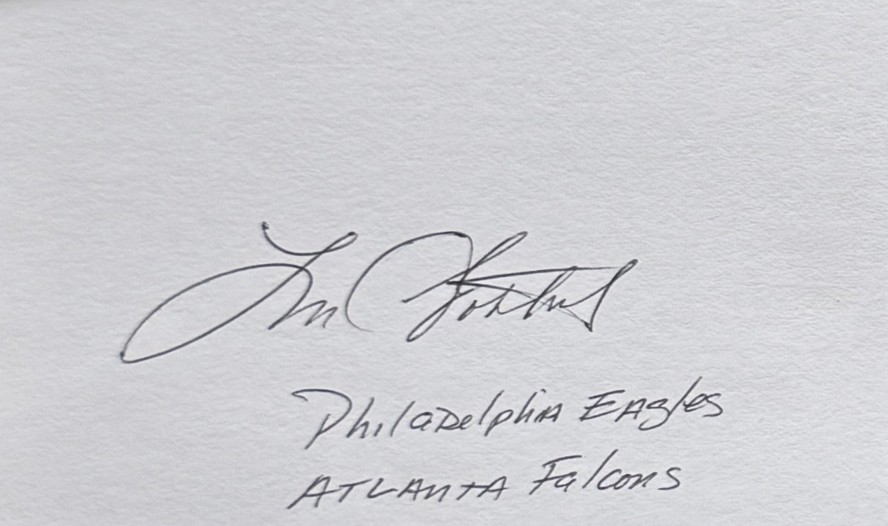 Philadelphia Eagles
Atlanta Falcons